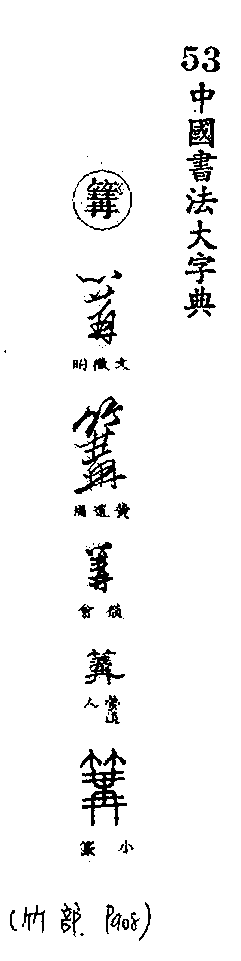 53 中國書法大字典
篝
篝
文徵明
篝
黃道周
篝
篝
篝
小篆
(竹部. P908)